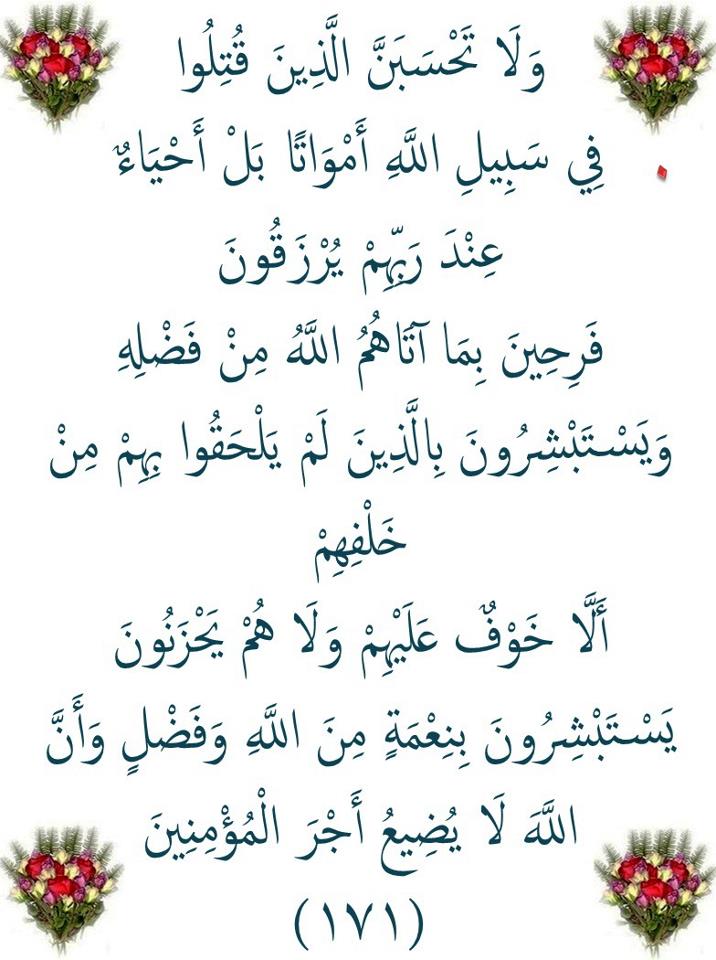 وَلَا تَحْسَبَنَّ الَّذِينَ قُتِلُوا
فِي سَبِيلِ اللَّهِ أَمْوَاتًا بَلْ أَحْيَاءٌ
عِنْدَ رَبِّهِمْ يُرْزَقُونَ
فَرِحِينَ بِمَا آتَاهُمُ اللَّهُ مِنْ فَضْلِهِ
وَيَسْتَبْشِرُونَ بِالَّذِينَ لَمْ يَلْحَقُوا بِهِمْ مِنْ
خَلْفِهِمْ
أَلَّا خَوْفٌ عَلَيْهِمْ وَلَا هُمْ يَحْزَنُونَ
يَسْتَبْشِرُونَ بِنِعْمَةٍ مِنَ اللَّهِ وَفَضْلٍ وَأَنَّ
اللَّهَ لَا يُضِيعُ أَجْرَ الْمُؤْمِنِينَ
(١٧١)